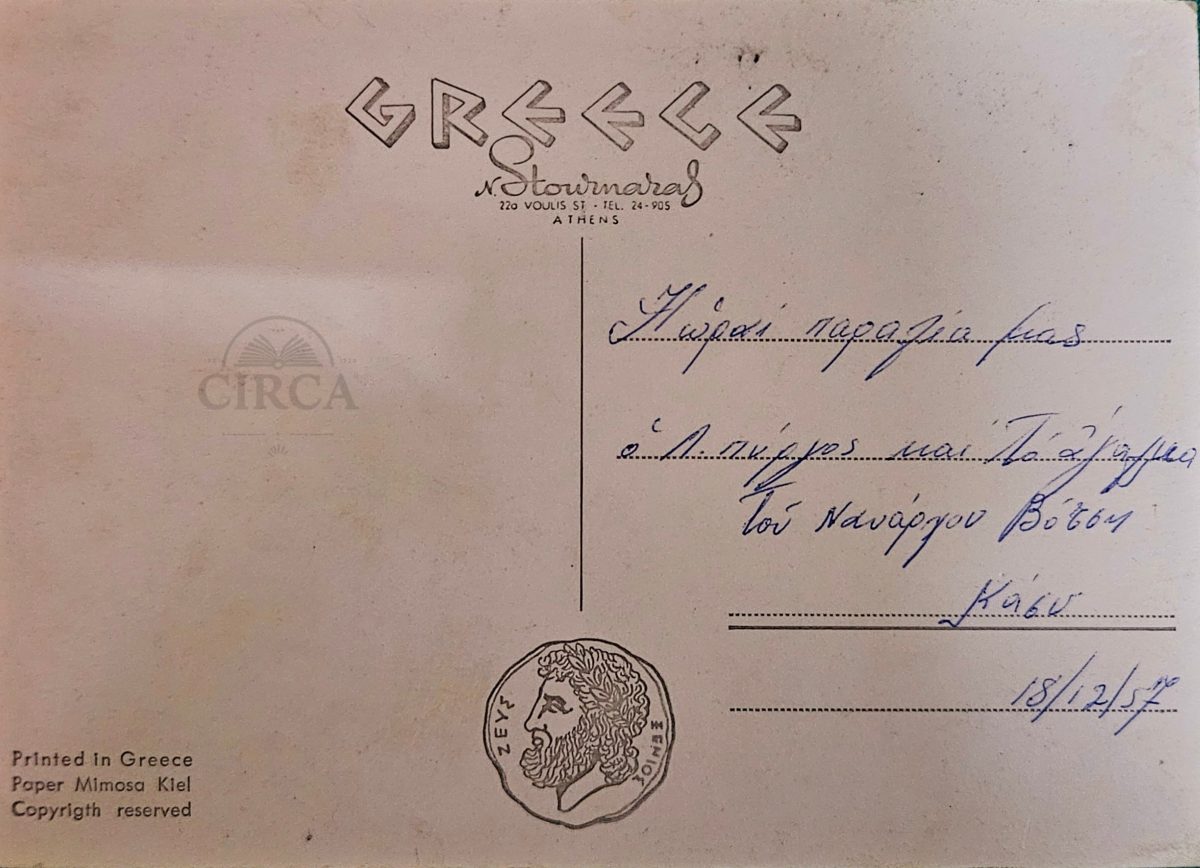 GREECE
N. Stournaras
22α VOULIS ST - TEL. 24-905
ATHENS
CIRCA
Ἡ ὡραί παραλία μας
ὁ Λ. πύργος καί Τό ἄγαλμα
Τοῦ Ναυάρχου Βότση
18/12/57
ΖΕΥΣ
ΞΕΝΙΟΣ
Printed in Greece
Paper Mimosa Kiel
Copyrigth reserved